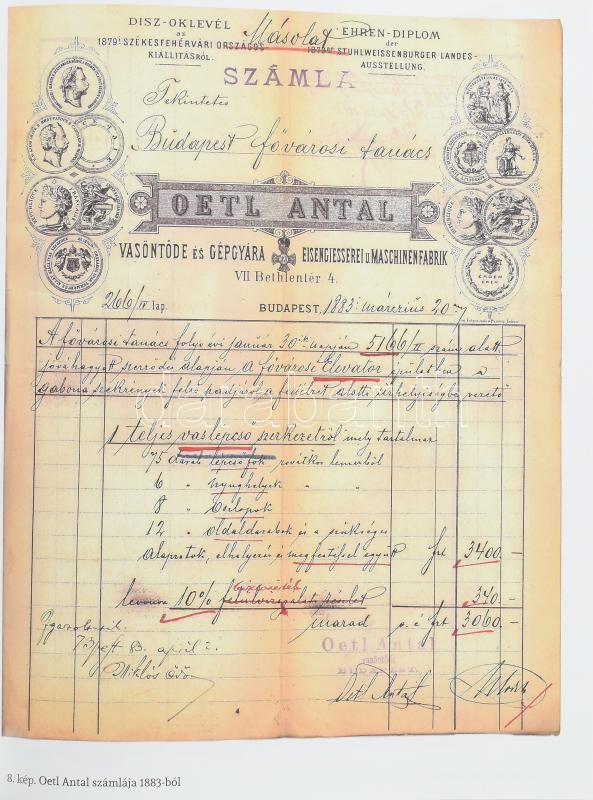 DISZ-OKLEVÉL
az
1879I SZÉKESFEHÉRVÁRI ORSZÁGOS
KIÁLLITÁSRÓL.
Másolat
EHREN-DIPLOM
der
1879er STUHLWEISSENBURGER LANDES-
AUSSTELLUNG.
SZÁMLA
Tekintetes
Budapest fővárosi tanács
OETL ANTAL
VASÖNTÖDE ÉS GÉPGYÁRA
EISENGIESSEREI u MASCHINENFABRIK
VII Bethlentér 4.
266/IV lap.
BUDAPEST, 1883. március 20
A fővárosi tanács folyó évi január 30ik napján 5166/II szám alatt
jóváhagyott szerződés alapján a fővárosi Elevator épületben a
gabona szekrények felső padjáról a fedélzet alatti helyiségbe vezető
1 teljes vaslépcső szerkezetről mely tartalmaz
75 darab lépcsőfok rovátkos lemezből
6 " nyughelyek " "
8 " oszlopok
12 " oldaldarabok és a szükséges
alapratok, elhelyezés és megfestéssel együtt frt 3400.–
levonva 10% 340.–
marad o. é frt 3060.–
Oetl Antal
vasöntöde
BUDAPEST.
83. april 2.
Miklós Ödö
Oetl Antal
darabanth
8. kép. Oetl Antal számlája 1883-ból